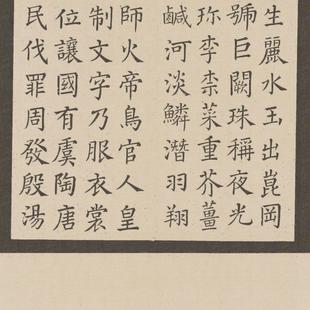 生麗水玉出崑岡
號巨闕珠稱夜光
珎李柰菜重芥薑
鹹河淡鱗潛羽翔
師火帝鳥官人皇
制文字乃服衣裳
位讓國有虞陶唐
民伐罪周發殷湯